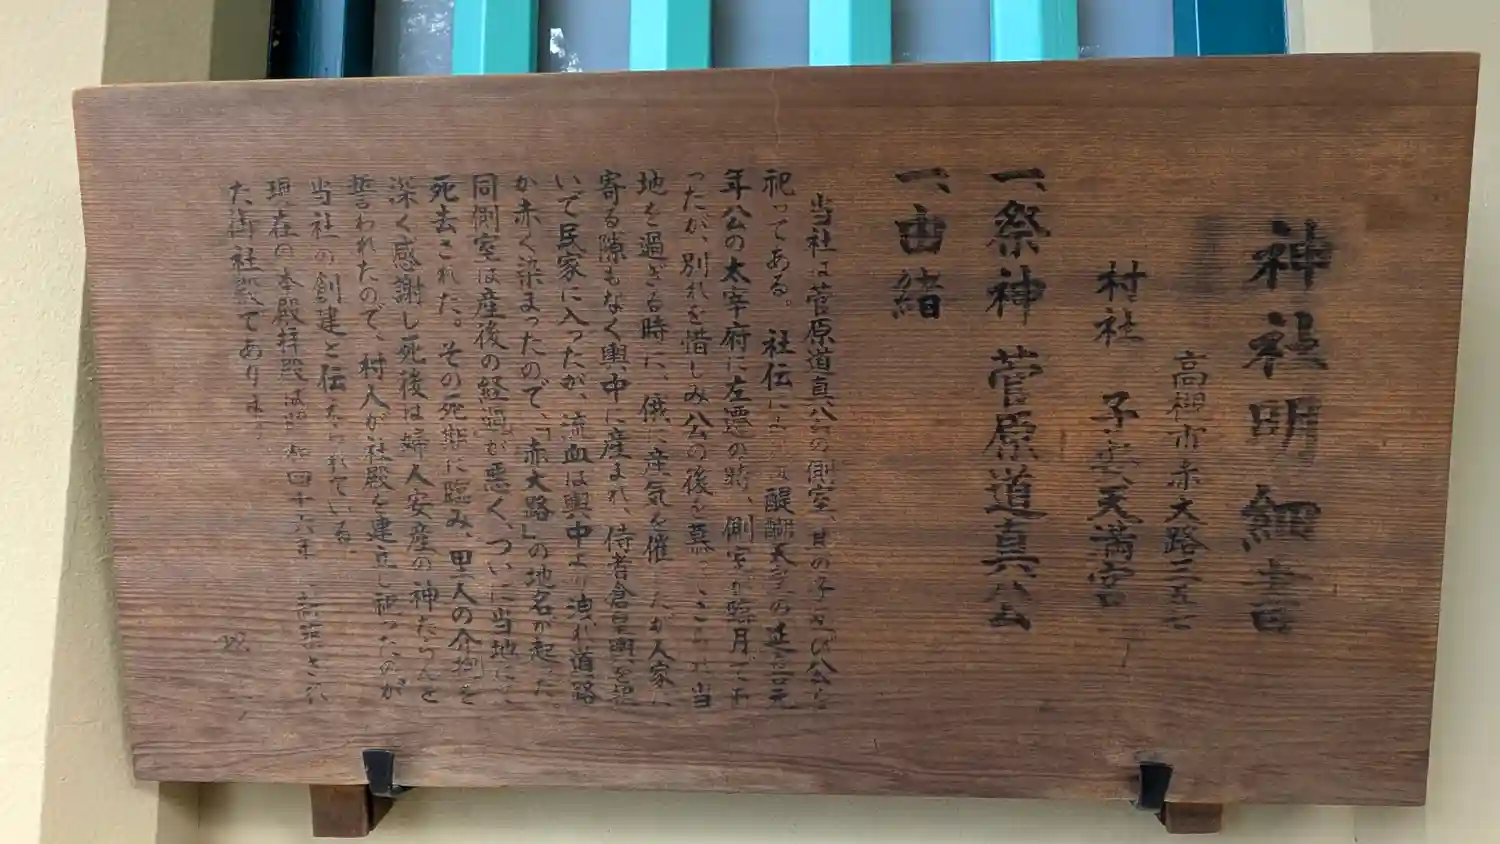 神社明細書
高槻市赤大路三五七
村社 子安天満宮
一、祭神 菅原道真公
一、由緒
当社は菅原道真公の側室、其の子及び公を
祀ってある。社伝に 醍醐天皇の延喜元
年公の太宰府に左遷の時、側室が臨月であ
ったが、別れを惜しみ公の後を慕 当
地を過ぎる時に、俄に産気を催したが人家に
寄る隙もなく輿中に産まれ、侍者倉皇輿を
いで民家に入ったが、流血は輿中より洩れ道路
が赤く染まったので、「赤大路」の地名が起った。
同側室は産後の経過が悪く、ついに当地にて
死去された。その死期に臨み、里人の介抱を
深く感謝し死後は婦人安産の神たらんを
誓われたので、村人が社殿を建立し祀ったのが
当社の創建と伝えられている。
現在の本殿拝殿は昭和四十六年 され
た御社殿であります。